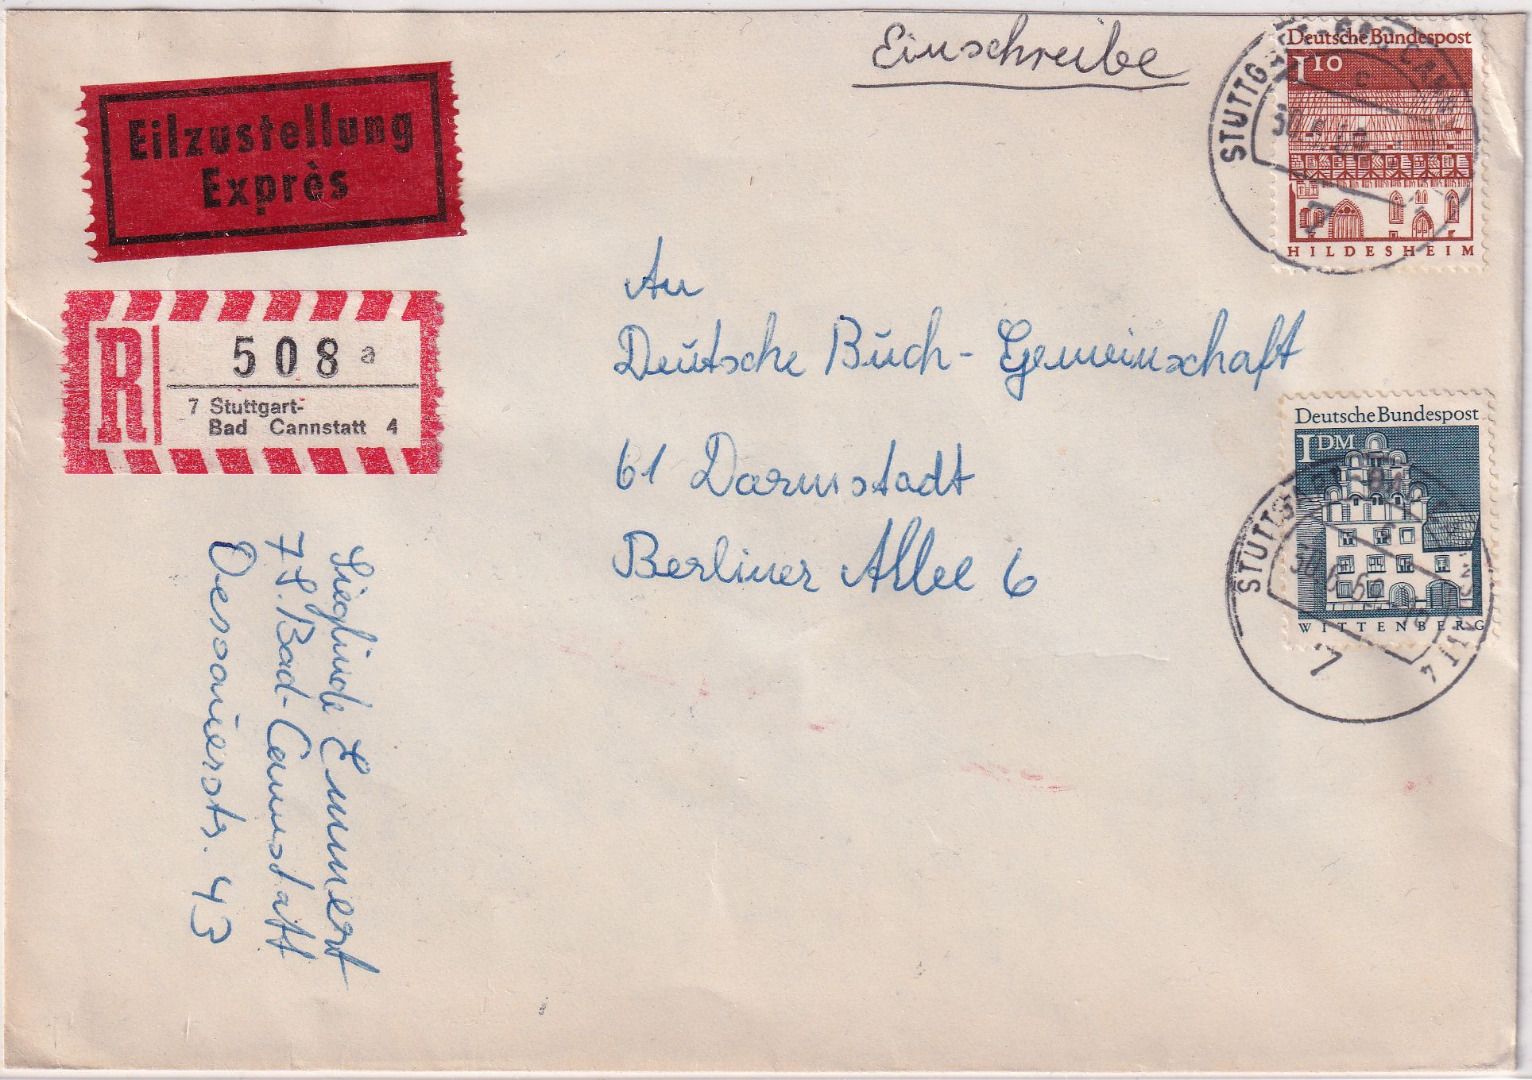 Einschreibe
Eilzustellung
Exprès
Deutsche Bundespost
1 10
HILDESHEIM
R 508 a
7 Stuttgart-
Bad Cannstatt 4
An
Deutsche Buch-Gemeinschaft
61 Darmstadt
Berliner Allee 6
Deutsche Bundespost
1 DM
WITTENBERG
7
Sieglinde Emmert
7 S. Bad-Cannstatt
Dessauerstr. 43